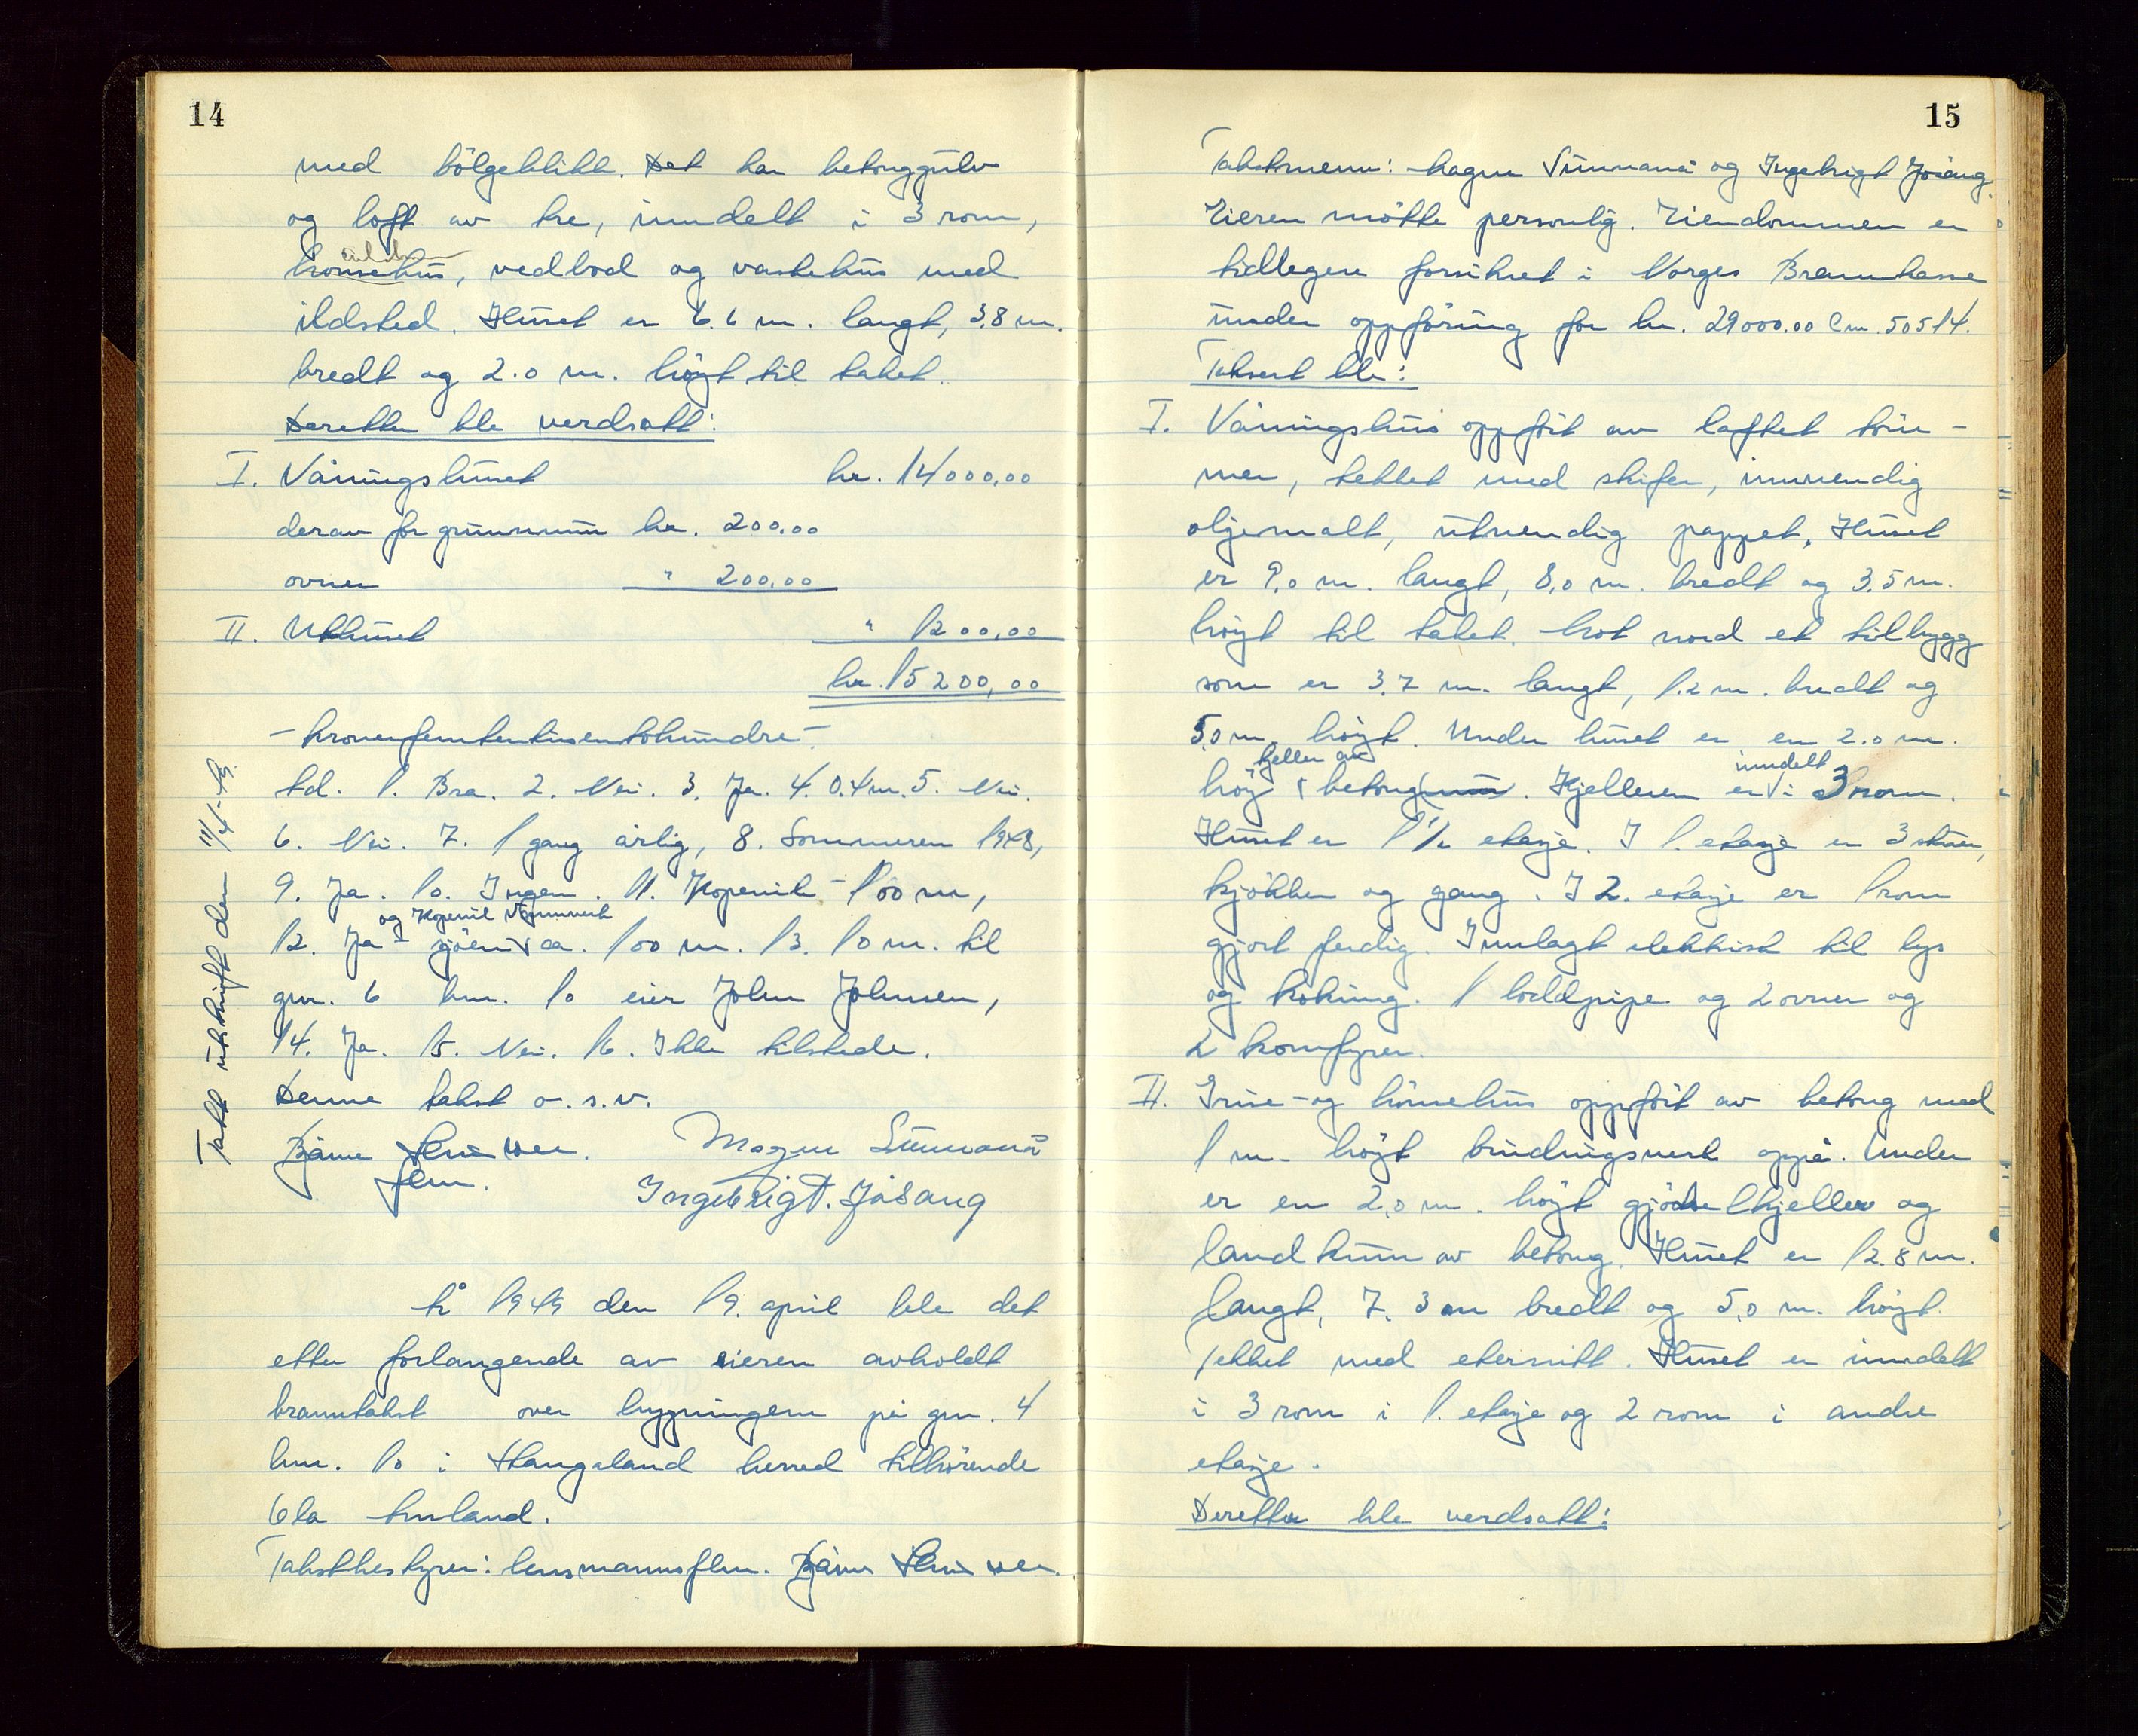 14
med bölgeblikk. Det har betonggulv
og loft av tre, inndelt i 3 rom,
hønsehus, vedbod og vaskehus med
ildsted. Huset er 6.6 m. langt, 3.8 m.
bredt og 2.0 m. høgt til taket.
Deretter ble verdsatt:
I. Våningshuset kr. 14000,00
derav for grunnmur kr. 200,00
ovner " 200,00
II. Uthuset " 1200,00
kr. 15200,00
- kronerfemtentusentohundre -
td. 1. Bra. 2. Nei. 3. Ja. 4. 0.4 m. 5. Nei.
6. Nei. 7. 1 gang årlig, 8. Sommeren 1948,
9. Ja. 10. Ingen. 11. Kopervik - 100 m,
og Kopervik Vannverk
12. Ja - sjøen ca. 100 m. 13. 10 m. til
gnr. 6 bnr. 10 eier John Johnsen,
14. Ja. 15. Nei. 16. Ikke tilstede.
Denne takst o.s.v.
Bjarne
flm.
Magne Sunnanå
Ingebrigt. Jåsang
Tatt utskrift den 11/4-49.
År 1949 den 19. april ble det
etter forlangende av eieren avholdt
branntakst over bygningene på gnr. 4
bnr. 10 i Haugaland herred tilhörende
Ola
Takstbestyrer: lensmannsflm. Bjarne
15
Takstmenn: Magne Sunnanå og Ingebrigt Jåsang.
Eieren mötte personlig. Eiendommen er
tidligere forsikret i Norges Brannkasse
under oppföring for kr. 29000.00 Cnr. 50514.
Taksert ble:
I. Våningshus oppfört av laftet töm-
mer, tekket med skifer, innvendig
oljemalt, utvendig pappet. Huset
er 9,0 m. langt, 8,0 m. bredt og 3.5 m.
høyt til taket. Mot nord et tilbygg
som er 3.7 m. langt, 1.2 m. bredt og
5.0 m. høyt. Under huset er en 2.0 m.
kjeller av
inndelt
høy betongmur. Kjelleren er i 3 rom.
Huset er 1 1/2 etasje. I 1. etasje er 3 stuer,
kjökken og gang. I 2. etasje er 1 rom
gjort ferdig. Innlagt elektrisk til lys
og koking. 1 loddpipe og 2 ovner og
2 komfyrer.
II. Grise- og hönsehus oppfört av betong med
1 m. höyt bindingsverk oppå. Under
er en 2,0 m. höyt gjödselkjeller og
landkum av betong. Huset er 12.8 m.
langt, 7.3 m bredt og 5,0 m. höyt.
Tekket med eternitt. Huset er inndelt
i 3 rom i 1. etasje og 2 rom i andre
etasje.
Deretter ble verdsatt: